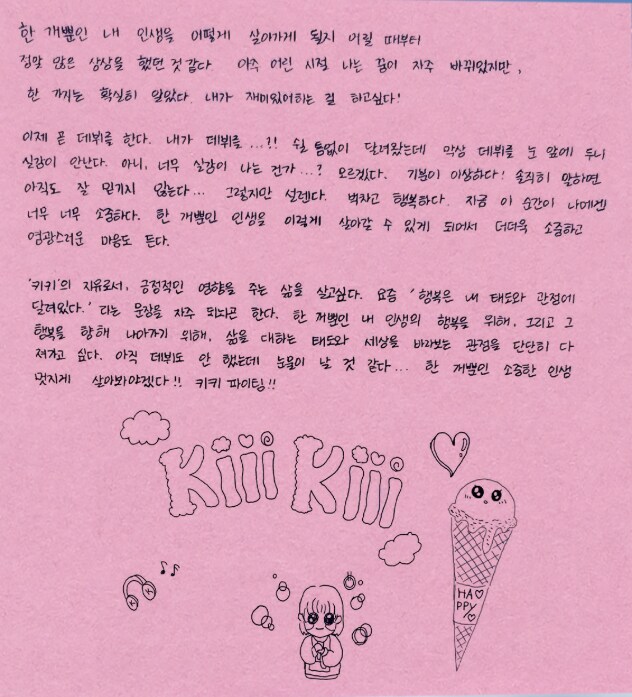 한 개뿐인 내 인생을 어떻게 살아가게 될지 어릴 때부터
정말 많은 상상을 했던 것 같다 아주 어린 시절 나는 꿈이 자주 바뀌었지만,
한 가지는 확실히 알았다. 내가 재미있어하는 걸 하고싶다!
이제 곧 데뷔를 한다. 내가 데뷔를...?! 쉴 틈없이 달려왔는데 막상 데뷔를 눈 앞에 두니
실감이 안난다. 아니, 너무 실감이 나는 건가...? 모르겠다. 기분이 이상하다! 솔직히 말하면
아직도 잘 믿기지 않는다... 그렇지만 설렌다. 벅차고 행복하다. 지금 이 순간이 나에겐
너무 너무 소중하다. 한 개뿐인 인생을 이렇게 살아갈 수 있게 되어서 더더욱 소중하고
영광스러운 마음도 든다.
'키키'의 지유로서, 긍정적인 영향을 주는 삶을 살고싶다. 요즘 '행복은 내 태도와 관점에
달려있다.' 라는 문장을 자주 되뇌곤 한다. 한 개뿐인 내 인생의 행복을 위해, 그리고 그
행복을 향해 나아가기 위해, 삶을 대하는 태도와 세상을 바라보는 관점을 단단히 다
져가고 싶다. 아직 데뷔도 안 했는데 눈물이 날 것 같다... 한 개뿐인 소중한 인생
멋지게 살아봐야겠다!! 키키 파이팅!!
Kiii Kiii
HA♡
PPY♡